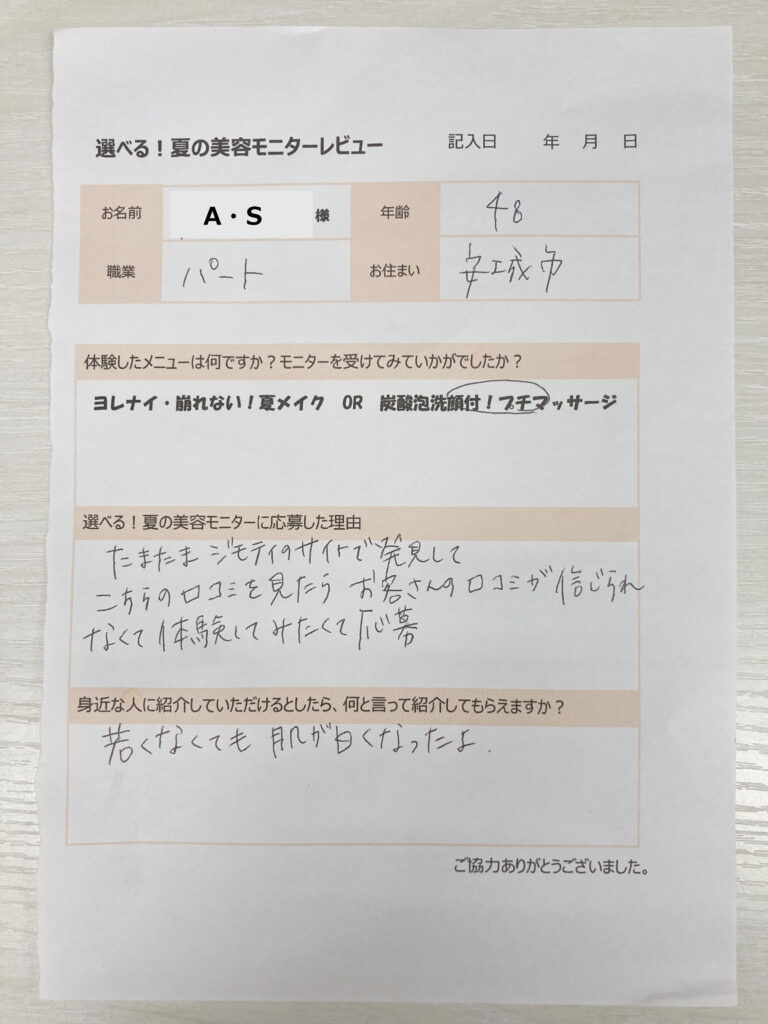 選べる！夏の美容モニターレビュー 記入日 年 月 日
お名前 A・S 様 年齢 48
職業 パート お住まい 安城市
体験したメニューは何ですか？モニターを受けてみていかがでしたか？
ヨレナイ・崩れない！夏メイク OR 炭酸泡洗顔付！プチマッサージ
選べる！夏の美容モニターに応募した理由
たまたま ジモティのサイトで発見して
こちらの口コミを見たら お客さんの口コミが信じられ
なくて体験してみたくて応募
身近な人に紹介していただけるとしたら、何と言って紹介してもらえますか？
若くなくても 肌が白くなったよ.
ご協力ありがとうございました。